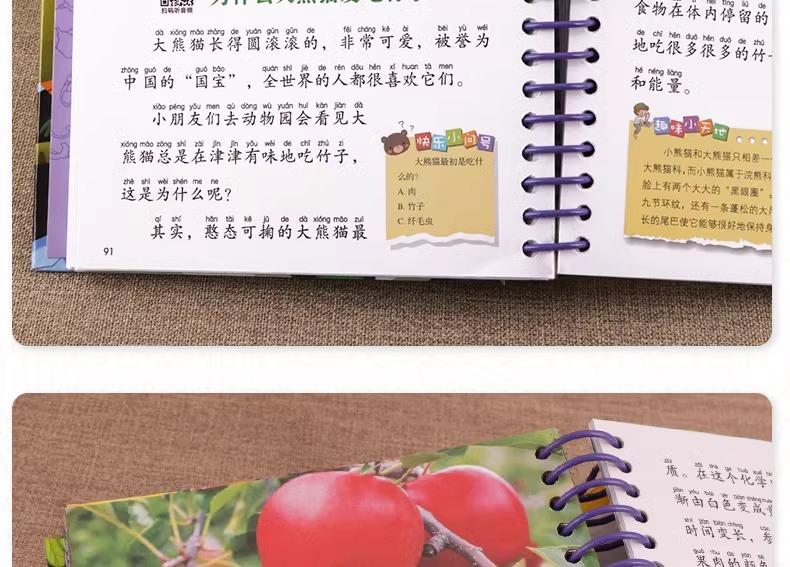 扫码听音频
dà xióng māo zhǎng de yuán gǔn gǔn de fēi cháng kě ài bèi yù wéi
大熊猫长得圆滚滚的，非常可爱，被誉为
zhōng guó de guó bǎo quán shì jiè de rén dōu hěn xǐ huan tā men
中国的“国宝”，全世界的人都很喜欢它们。
xiǎo péng yǒu men qù dòng wù yuán huì kàn jiàn dà
小朋友们去动物园会看见大
xióng māo zǒng shì zài jīn jīn yǒu wèi de chī zhú zi
熊猫总是在津津有味地吃竹子，
zhè shì wèi shén me ne
这是为什么呢？
qí shí hān tài kě jū de dà xióng māo zuì
其实，憨态可掬的大熊猫最
91
快乐小问号
大熊猫最初是吃什
么的？
A. 肉
B. 竹子
C. 纤毛虫
食物在体内停留的
地吃很多很多的竹子
hé néng liàng
和能量。
趣味小天地
小熊猫和大熊猫只相差一
大熊猫科，而小熊猫属于浣熊科
脸上有两个大大的“黑眼圈”。
九节环纹，还有一条蓬松的大
长的尾巴使它能够很好地保持身
质。在这个化学
渐由白色变成
时间变长，
果肉的颜色